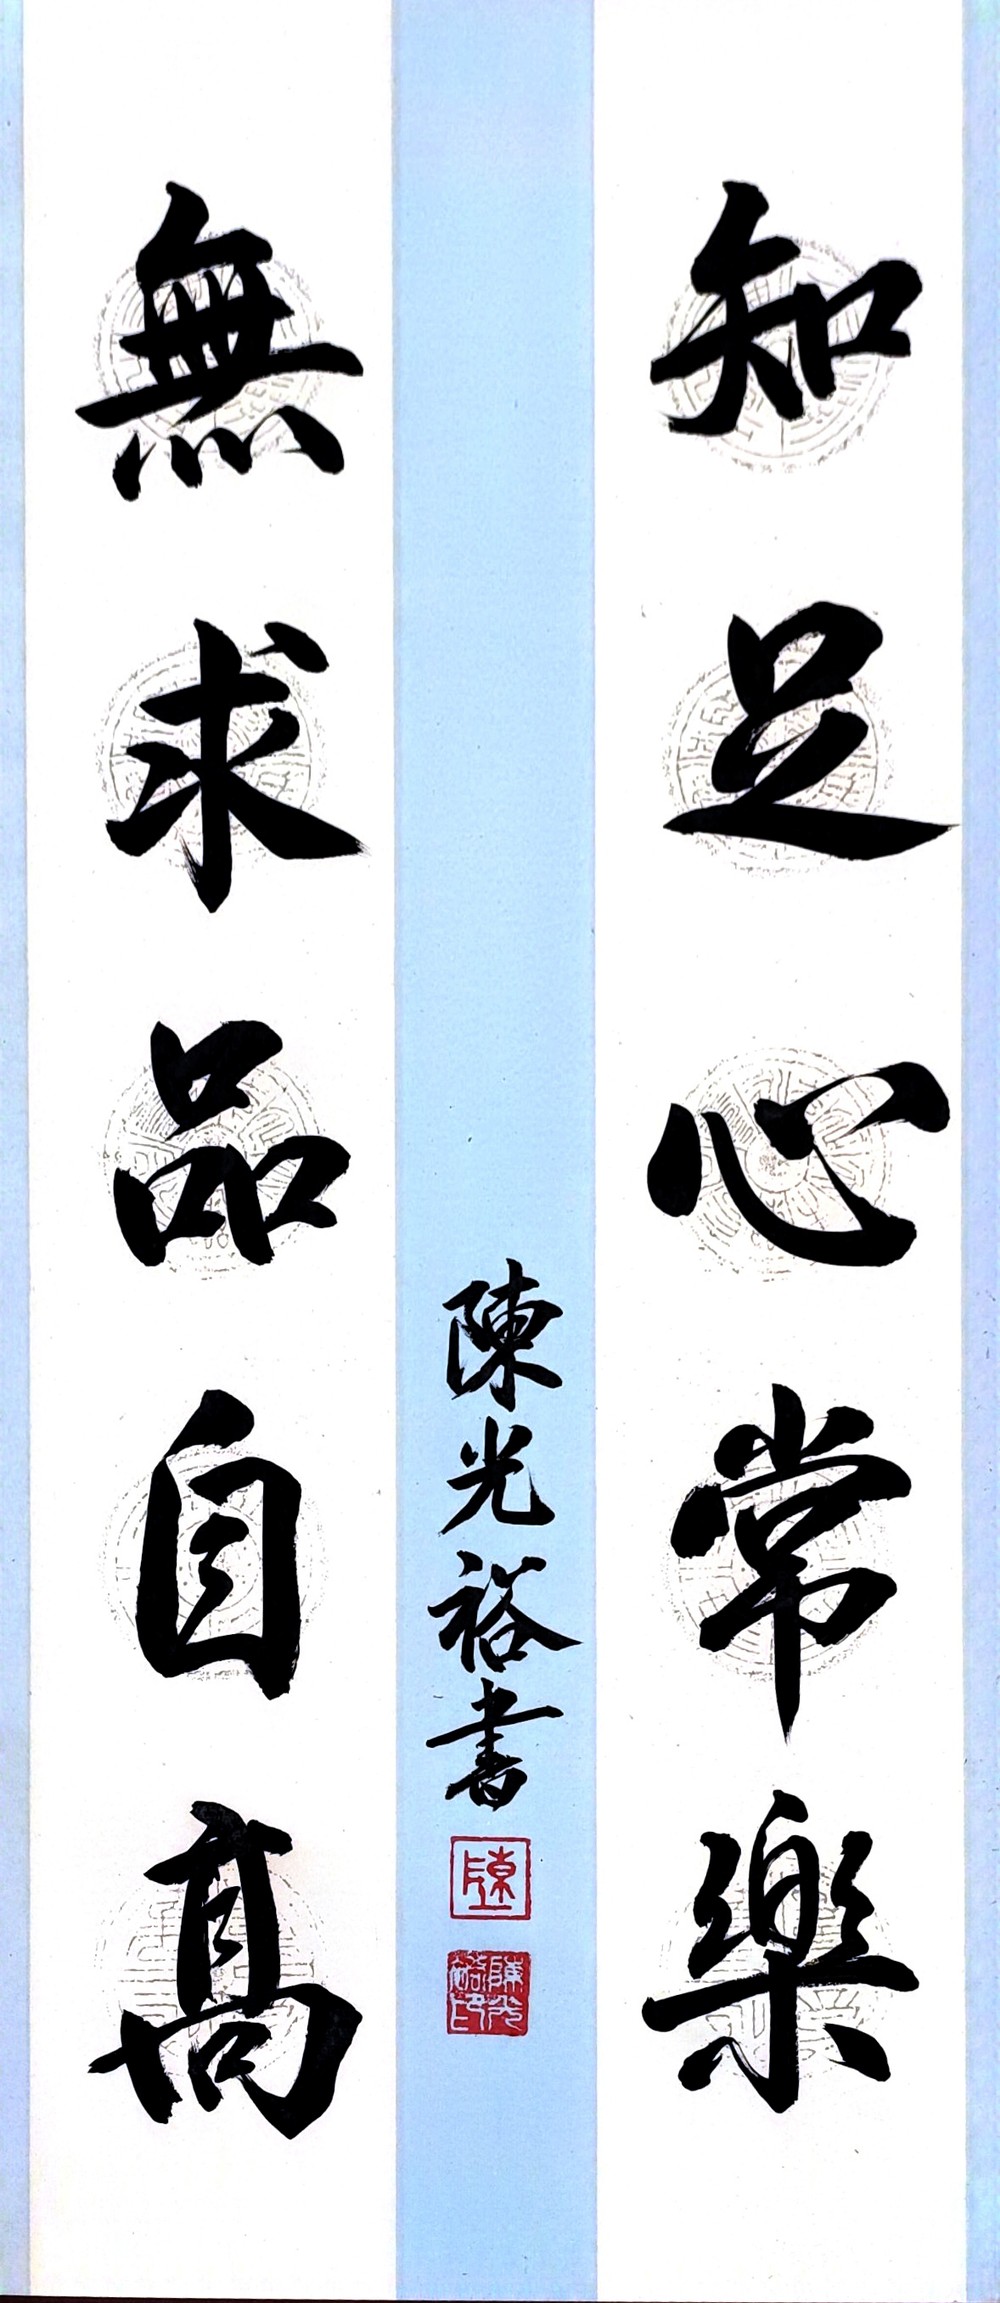 知足心常樂
無求品自高
陳光裕書
陳
陳光裕印